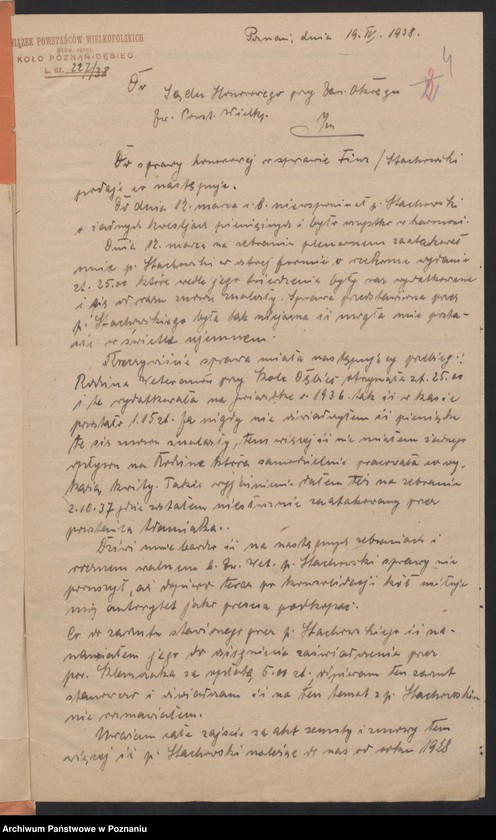 ZWIĄZEK POWSTAŃCÓW WIELKOPOLSKICH
KOŁO POZNAŃ-DĘBIEC
L. dz. 227/38
Poznań, dnia 19. IV. 1938.
4
2
Do
Sądu Honorowego przy Zarz. Okręgu
Zw. Powst. Wielkp.
Do sprawy honorowej w sprawie / Stachowski
podaję co następuje.
Do dnia 12. marca r. b. nie wspominał p. Stachowski
o żadnych kwestjach pieniężnych i było wszystko w harmonji.
Dnia 12. marca na zebraniu plenarnem zaatakował
mnie p. Stachowski w ostrej formie o rzekome wydanie
zł. 25.00 które wedle jego twierdzenia były raz wydatkowane
i się od razu znowu znalazły. Sprawa przedstawiona przez
p. Stachowskiego była tak niejasna iż mogła mnie posta-
wić w świetle ujemnem.
Rzeczywiście sprawa miała następujący przebieg:
Rodzina Weteranów przy Kole Dębiec otrzymała zł. 25.00
i te wydatkowała na gwiazdkę r. 1936. tak iż w kasie
pozostało 1.05 zł. Ja nigdy nie oświadczyłem iż pieniądze
te się znowu znalazły, tem więcej iż nie miałem żadnego
wpływu na Rodzinę która samodzielnie pracowała
kwity. Takie wyjaśnienie dałem też na zebraniu
2.10.37 gdzie zostałem nieszczenie zaatakowany przez
powstańca Adamiaka.
Dziwi mnie bardzo iż na następnych zebraniach i
rocznem walnem p. Stachowski sprawy nie
poruszył, aż dopiero teraz po konsolidacji kół usiłuje
mój autorytet jako prezesa podkopać.
Co do zarzutu stawionego przez p. Stachowskiego iż na-
mawiałem jego do zaświadczenia przez
pow. za wpłatę 5.00 zł. odpieram ten zarzut
stanowczo i oświadczam iż na ten temat z p. Stachowskim
nie rozmawiałem.
Uważam całe zajście za akt zemsty i zmowy tem
więcej iż p. Stachowski należąc do nas od roku 1928
Archiwum Państwowe w Poznaniu